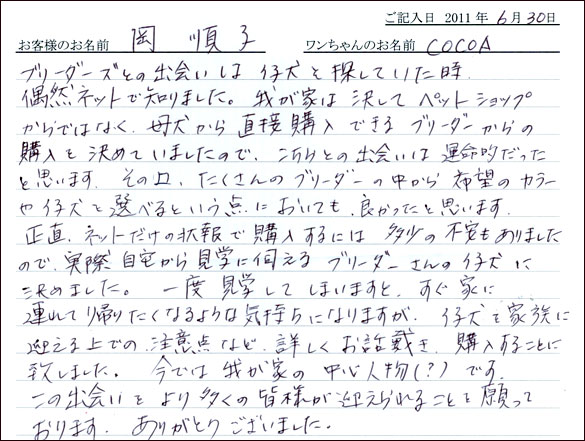 ご記入日 2011年 6月30日
お客様のお名前 岡 順子 ワンちゃんのお名前 COCOA
ブリーダーズとの出会いは仔犬を探していた時、
偶然ネットで知りました。我が家は決してペットショップ
からではなく、母犬から直接購入できるブリーダーからの
購入を決めていましたので、こちらとの出会いは運命的だった
と思います。その上、たくさんのブリーダーの中から希望のカラー
や仔犬を選べるという点においても、良かったと思います。
正直、ネットだけの状報で購入するには多少の不安もありました
ので、実際自宅から見学に伺えるブリーダーさんの仔犬に
決めました。一度見学してしまいますと、すぐ家に
連れて帰りたくなるような気持ちになりますが、仔犬を家族に
迎える上での注意点など、詳しくお話戴き、購入することに
致しました。今では我が家の中心人物(?)です。
この出会いをより多くの皆様が迎えられることを願って
おります。ありがとうございました。